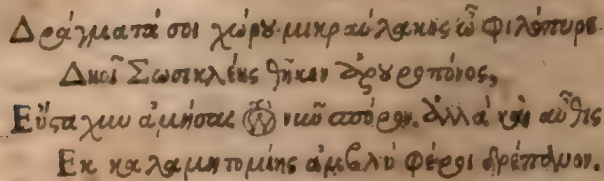 Δράγματά σοι χώρου μικραύλακος ὦ φιλόπυρε
Δηοῖ Σωσικλέης θῆκεν ἀρουροπόνος,
Εὔσταχυν ἀμήσας τὸν νῦν σπόρον. ἀλλὰ καὶ αὖθις
Εκ καλαμητομίης ἀμβλὺ φέροι δρέπανον.